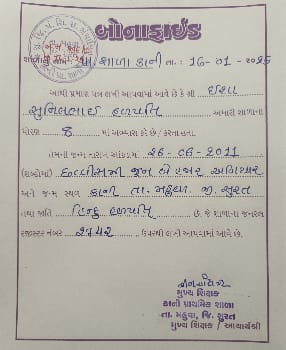 બોનાફાઇડ
શાળાનું નામ પ્રા. શાળા કાની તા.: 16-01-2025
આથી પ્રમાણ પત્ર લખી આપવામાં આવે છે કે શ્રી ઇશા
સુનિલભાઇ હળપતિ અમારી શાળાના
ધોરણ 8 માં અભ્યાસ કરે છે/કરતા હતા.
તેમની જન્મ તારીખ આંકડામાં 26-06-2011
(શબ્દોમાં) છવ્વીસમી જૂન બે હજાર અગિયાર
અને જન્મ સ્થળ કાની તા. મહુવા જી. સુરત
તથા જાતિ હિન્દુ હળપતિ છે. જે શાળાના જનરલ
રજીસ્ટર નંબર 2742 ઉપરથી લખી આપવામાં આવે છે.
મુખ્ય શિક્ષક
કાની પ્રાથમિક શાળા
તા. મહુવા, જિ. સુરત
મુખ્ય શિક્ષક / આચાર્યશ્રી